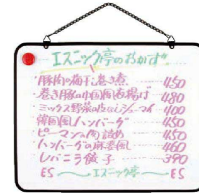 エスニック亭のおかず
豚肉の梅干し巻き煮 450
巻き豚の中国風お揚げ 480
ミックス野菜の皮なしシューマイ 400
韓国風ハンバーグ 450
ピーマンの肉詰め 450
ハンバーグの麻婆風 460
レバニラ餃子 390
ES エスニック亭 ES